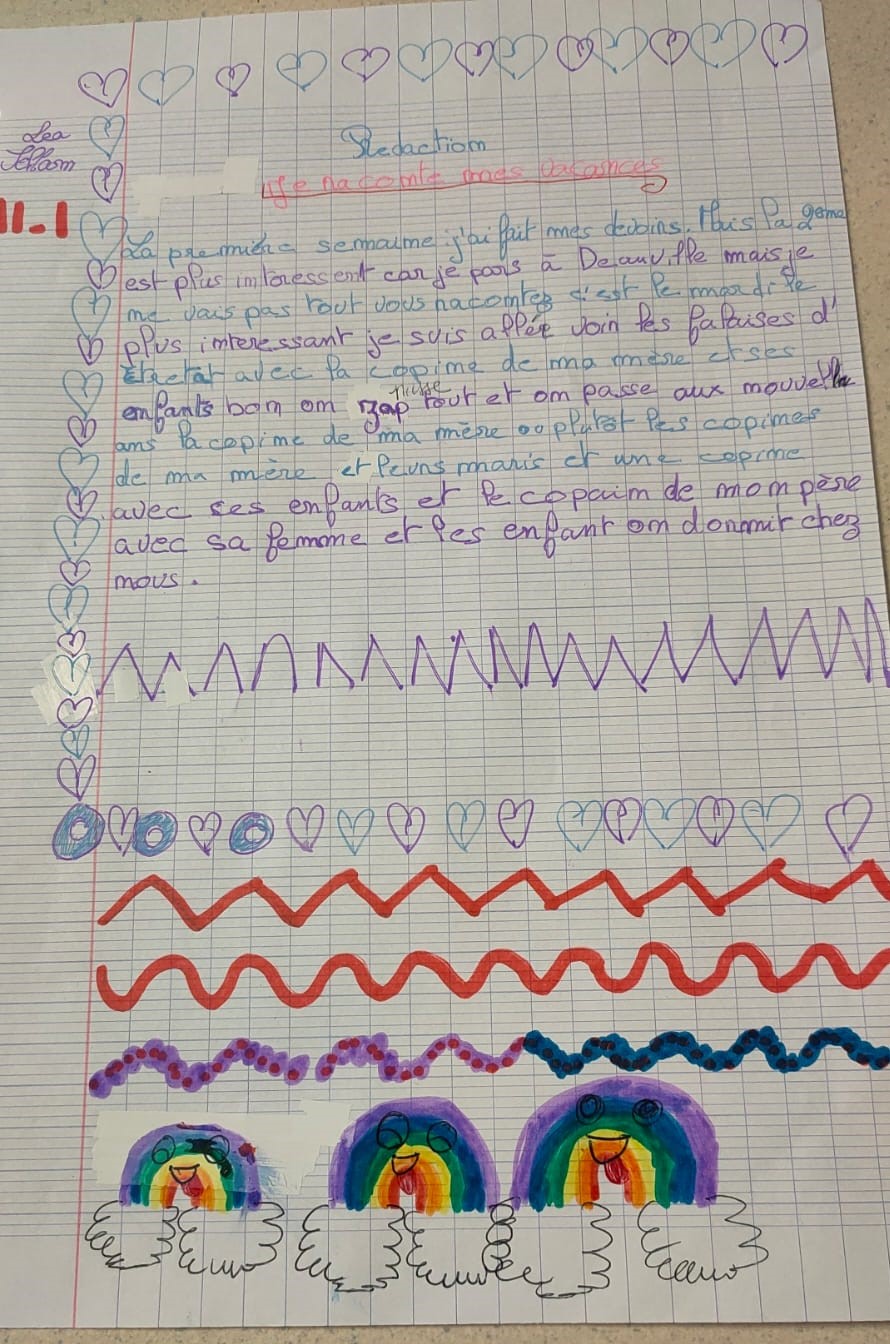 Lea
Rédaction
Je raconte mes vacances
11-1
La première semaine j'ai fait mes devoirs. Mais la 2eme
est plus interessent car je pars à Deauville mais je
ne vais pas tout vous racontez s'est le mardi le
plus interessant je suis allée voir les falaises d'
Etretat avec la copine de ma mère et ses
enfants bon on zap tout et on passe aux nouvelle
ans la copine de ma mère ou plutot les copines
de ma mère et leurs maris et une copine
avec ses enfants et le copain de mon père
avec sa femme et les enfant on dormir chez
nous.